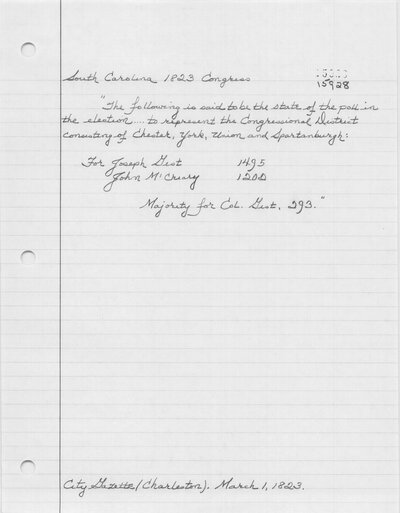 South Carolina 1823 Congress
15928
"The following is said to be the state of the poll in
the election.... to represent the Congressional District
consisting of Chester, York, Union and Spartanburgh:
For Joseph Gist 1495
John McCreary
Majority for Col. Gist, 293."
City Gazette (Charleston). March 1, 1823.